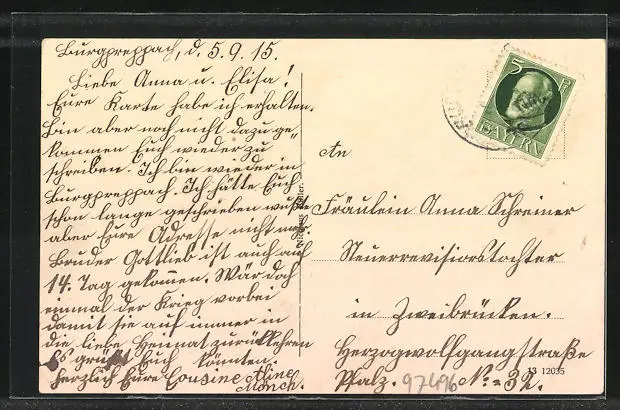 Burgpreppach, d. 5.9.15.
Liebe Anna u. Elisa!
Eure Karte habe ich erhalten.
Bin aber noch nicht dazu ge-
kommen Euch wieder zu
schreiben. Ich bin wieder in
Burgpreppach. Ich hätte Euch
schon lange geschrieben wußte
aber Eure Adresse nicht mehr.
Bruder Gottlieb ist auch auf
14. Tag gekommen. Wär doch
einmal der Krieg vorbei
damit sie auf immer in
die liebe Heimat zurückkehren
könnten.
Es grüßt Euch
herzlich Eure Cousine Aline
Münch.
5 PF
BAYERN
An
Fräulein Anna Schreiner
Steuerrevisiorstochter
in Zweibrücken.
Herzogwolfgangstraße
Pfalz. No = 32.
13 12035
97496